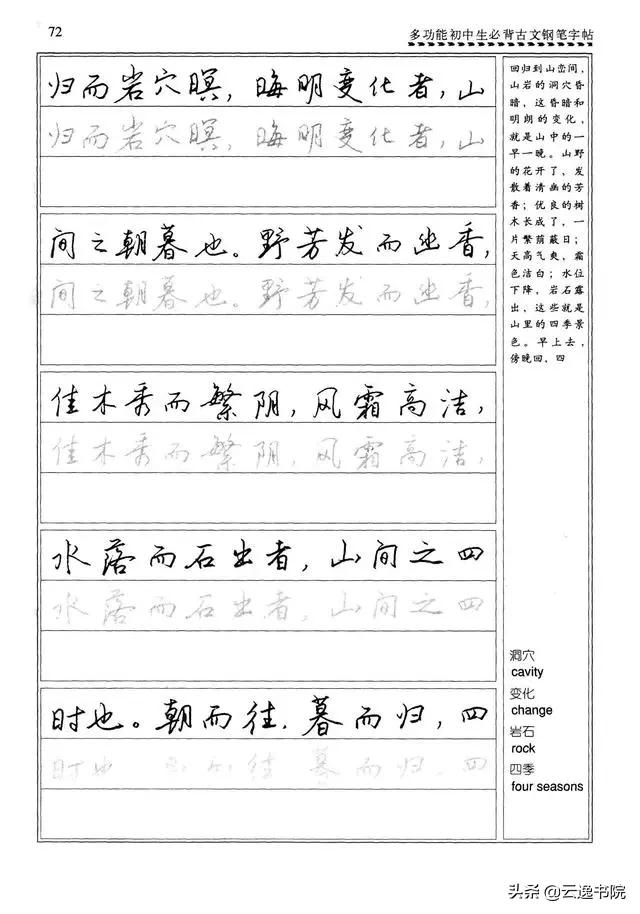 72
多功能初中生必背古文钢笔字帖
归而岩穴暝，晦明变化者，山
归而岩穴暝，晦明变化者，山
间之朝暮也。野芳发而幽香，
间之朝暮也。野芳发而幽香，
佳木秀而繁阴，风霜高洁，
佳木秀而繁阴，风霜高洁，
水落而石出者，山间之四
水落而石出者，山间之四
时也。朝而往，暮而归，四
时也 往 暮而归，四
回归到山峦间，
山岩的洞穴昏
暗，这昏暗和
明朗的变化，
就是山中的一
早一晚。山野
的花开了，发
散着清幽的芳
香；优良的树
木长成了，一
片繁荫蔽日；
天高气爽，霜
色洁白；水位
下降，岩石露
出，这些就是
山里的四季景
色。早上去，
傍晚回，四
洞穴
cavity
变化
change
岩石
rock
四季
four seasons
头条@云逸书院